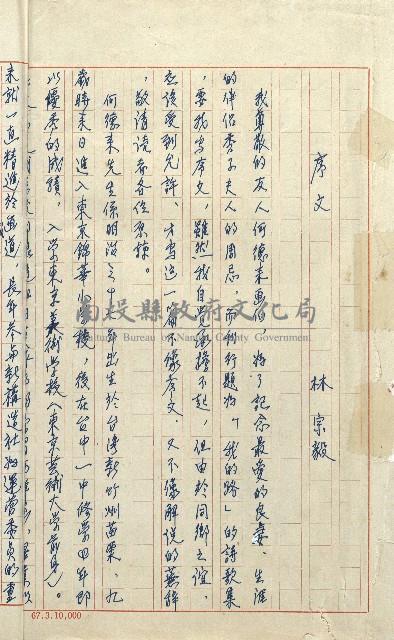 序文
林宗毅
我尊敬的友人何德来画伯，為了記念最愛的良妻、生涯
的伴侶秀子夫人的周忌，而刊行題為「我的路」的詩歌集
，要我写序文，雖然我自覚承擔不起，但由於同鄉之誼，
应该受到允許、才写這一篇不像序文、又不像解说的蕪辞
，敬請讀者各位原諒。
何德来先生係明治三十七年出生於台湾新竹州苗栗，九
歲時来日進入東京錦華小学校，後在台中一中修学四年即
以優秀的成績，入学東京美術学校（東京芸術大学前身）。
来就一直精進於画道，長年参与新構造社為運営委員的重
南投縣政府文化局
Cultural Bureau of Nantou County Government
67.3.10,000